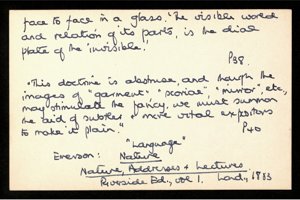 face to face in a glass. 'The visible world
and relation of its parts, is the dial
plate of the invisible.'
P38.
"This doctrine is abstruse, and though the
images of "garment" "scoriae", "mirror", etc.,
may stimulate the fancy, we must summon
the aid of subtler & more vital expositors
to make it plain."
P40
"Language"
Emerson: Nature
Nature, Addresses & Lectures
Riverside Ed., vol 1. Lond., 1883